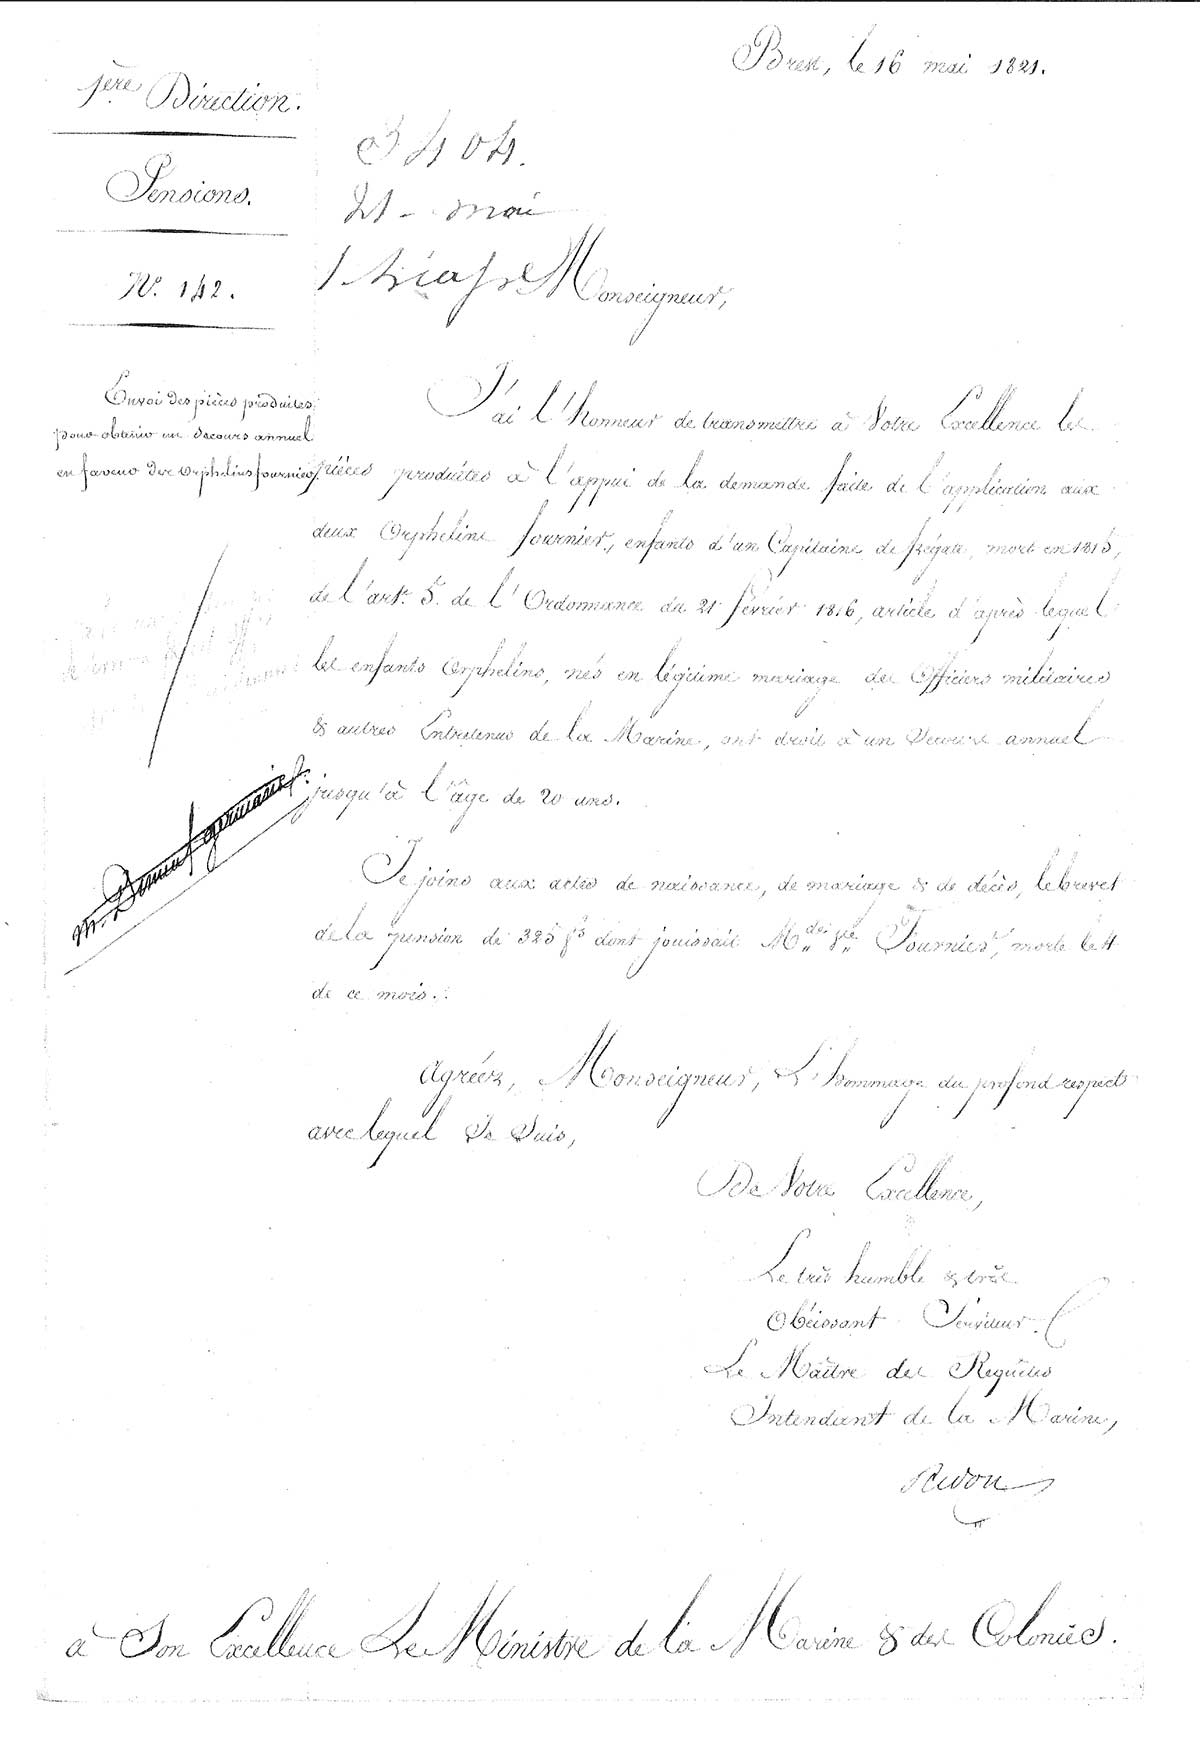 Brest, le 16 mai 1821.
1ère Direction.
Pensions.
N.º 142.
3404.
21 - mai
Monseigneur,
Envoi des pièces produites
pour obtenir un secours annuel
en faveur des Orphelins fournier.
J'ai l'honneur de transmettre à Votre Excellence les
pièces produites à l'appui de la demande faite de l'application aux
deux Orphelins fournier, enfants d'un Capitaine de frégate, mort en 1815,
de l'art. 5. de l'Ordonnance du 21 février 1816, article d'après lequel
les enfants Orphelins, nés en légitime mariage des Officiers militaires
& autres Entretenus de la Marine, ont droit à un Secours annuel
jusqu'à l'âge de 20 ans.
Je joins aux actes de naissance, de mariage & de décès, le brevet
de la pension de 325 fs dont jouissait Mde. Ve. Fournier, morte le 4
de ce mois.
Agréez, Monseigneur, L'hommage du profond respect
avec lequel Je Suis,
De Votre Excellence,
Le très humble & très
Obéissant Serviteur.
Le Maître des Requêtes
Intendant de la Marine,
Redon
à Son Excellence Le Ministre de la Marine & des Colonies.